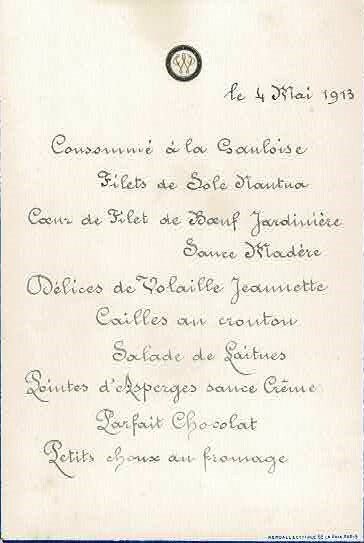 le 4 Mai 1913
Consommé à la Gauloise
Filets de Sole Nantua
Cœur de Filet de Bœuf Jardinière
Sauce Madère
Délices de Volaille Jeannette
Cailles au crouton
Salade de Laitues
Pointes d'Asperges sauce Crême
Parfait Chocolat
Petits choux au fromage
PARIS